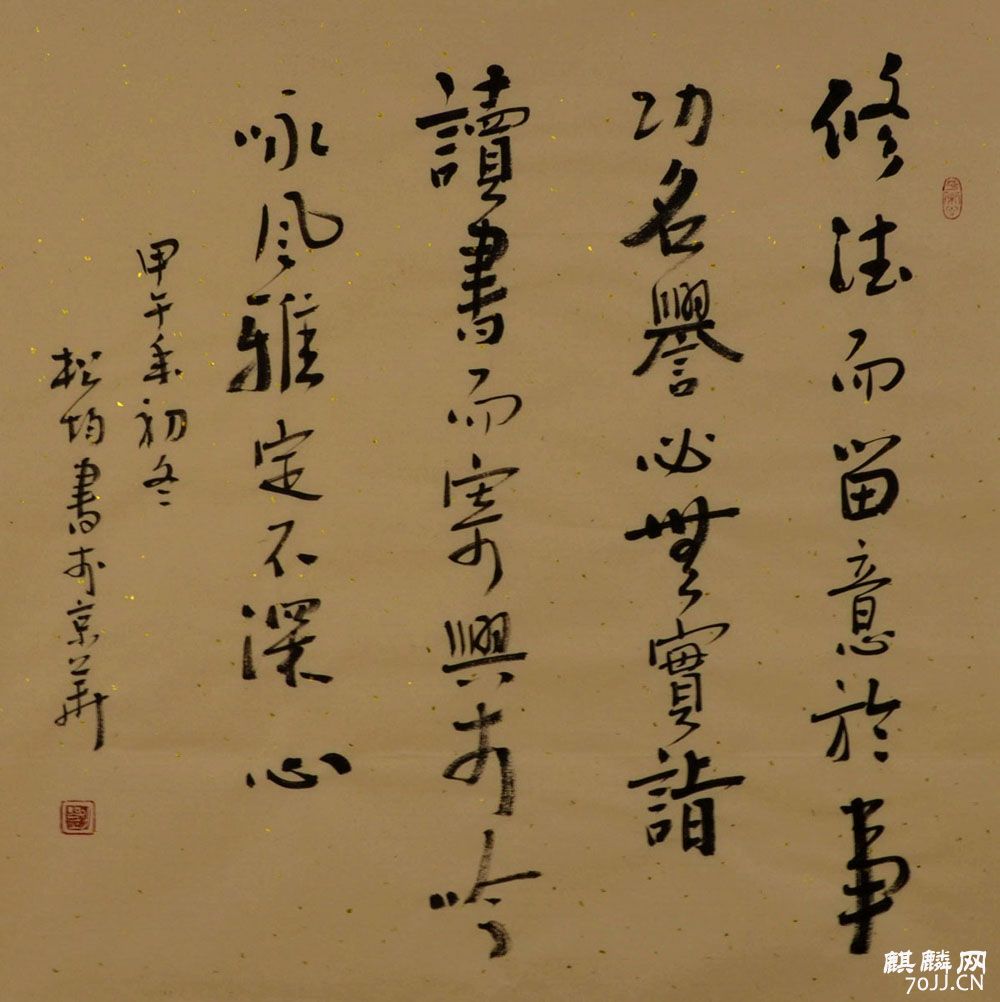 修德而留意於事
功名譽必無實詣
讀書而寄興於吟
咏風雅定不深心
甲午年初冬
松均書於京華
麒麟网
70JJ.CN